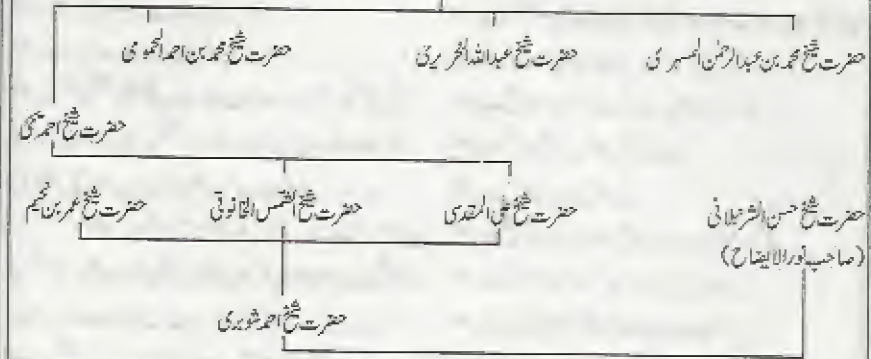 حضرت شیخ محمد بن عبدالرحمٰن المسیری حضرت شیخ عبداللہ النحریری حضرت شیخ محمد بن احمد الحموی
حضرت شیخ احمد
حضرت شیخ حسن الشرنبلالی حضرت شیخ علی المقدسی حضرت شیخ الشمس الحانوتی حضرت شیخ عمر بن نجیم
(صاحب نور الایضاح)
حضرت شیخ احمد شوبری